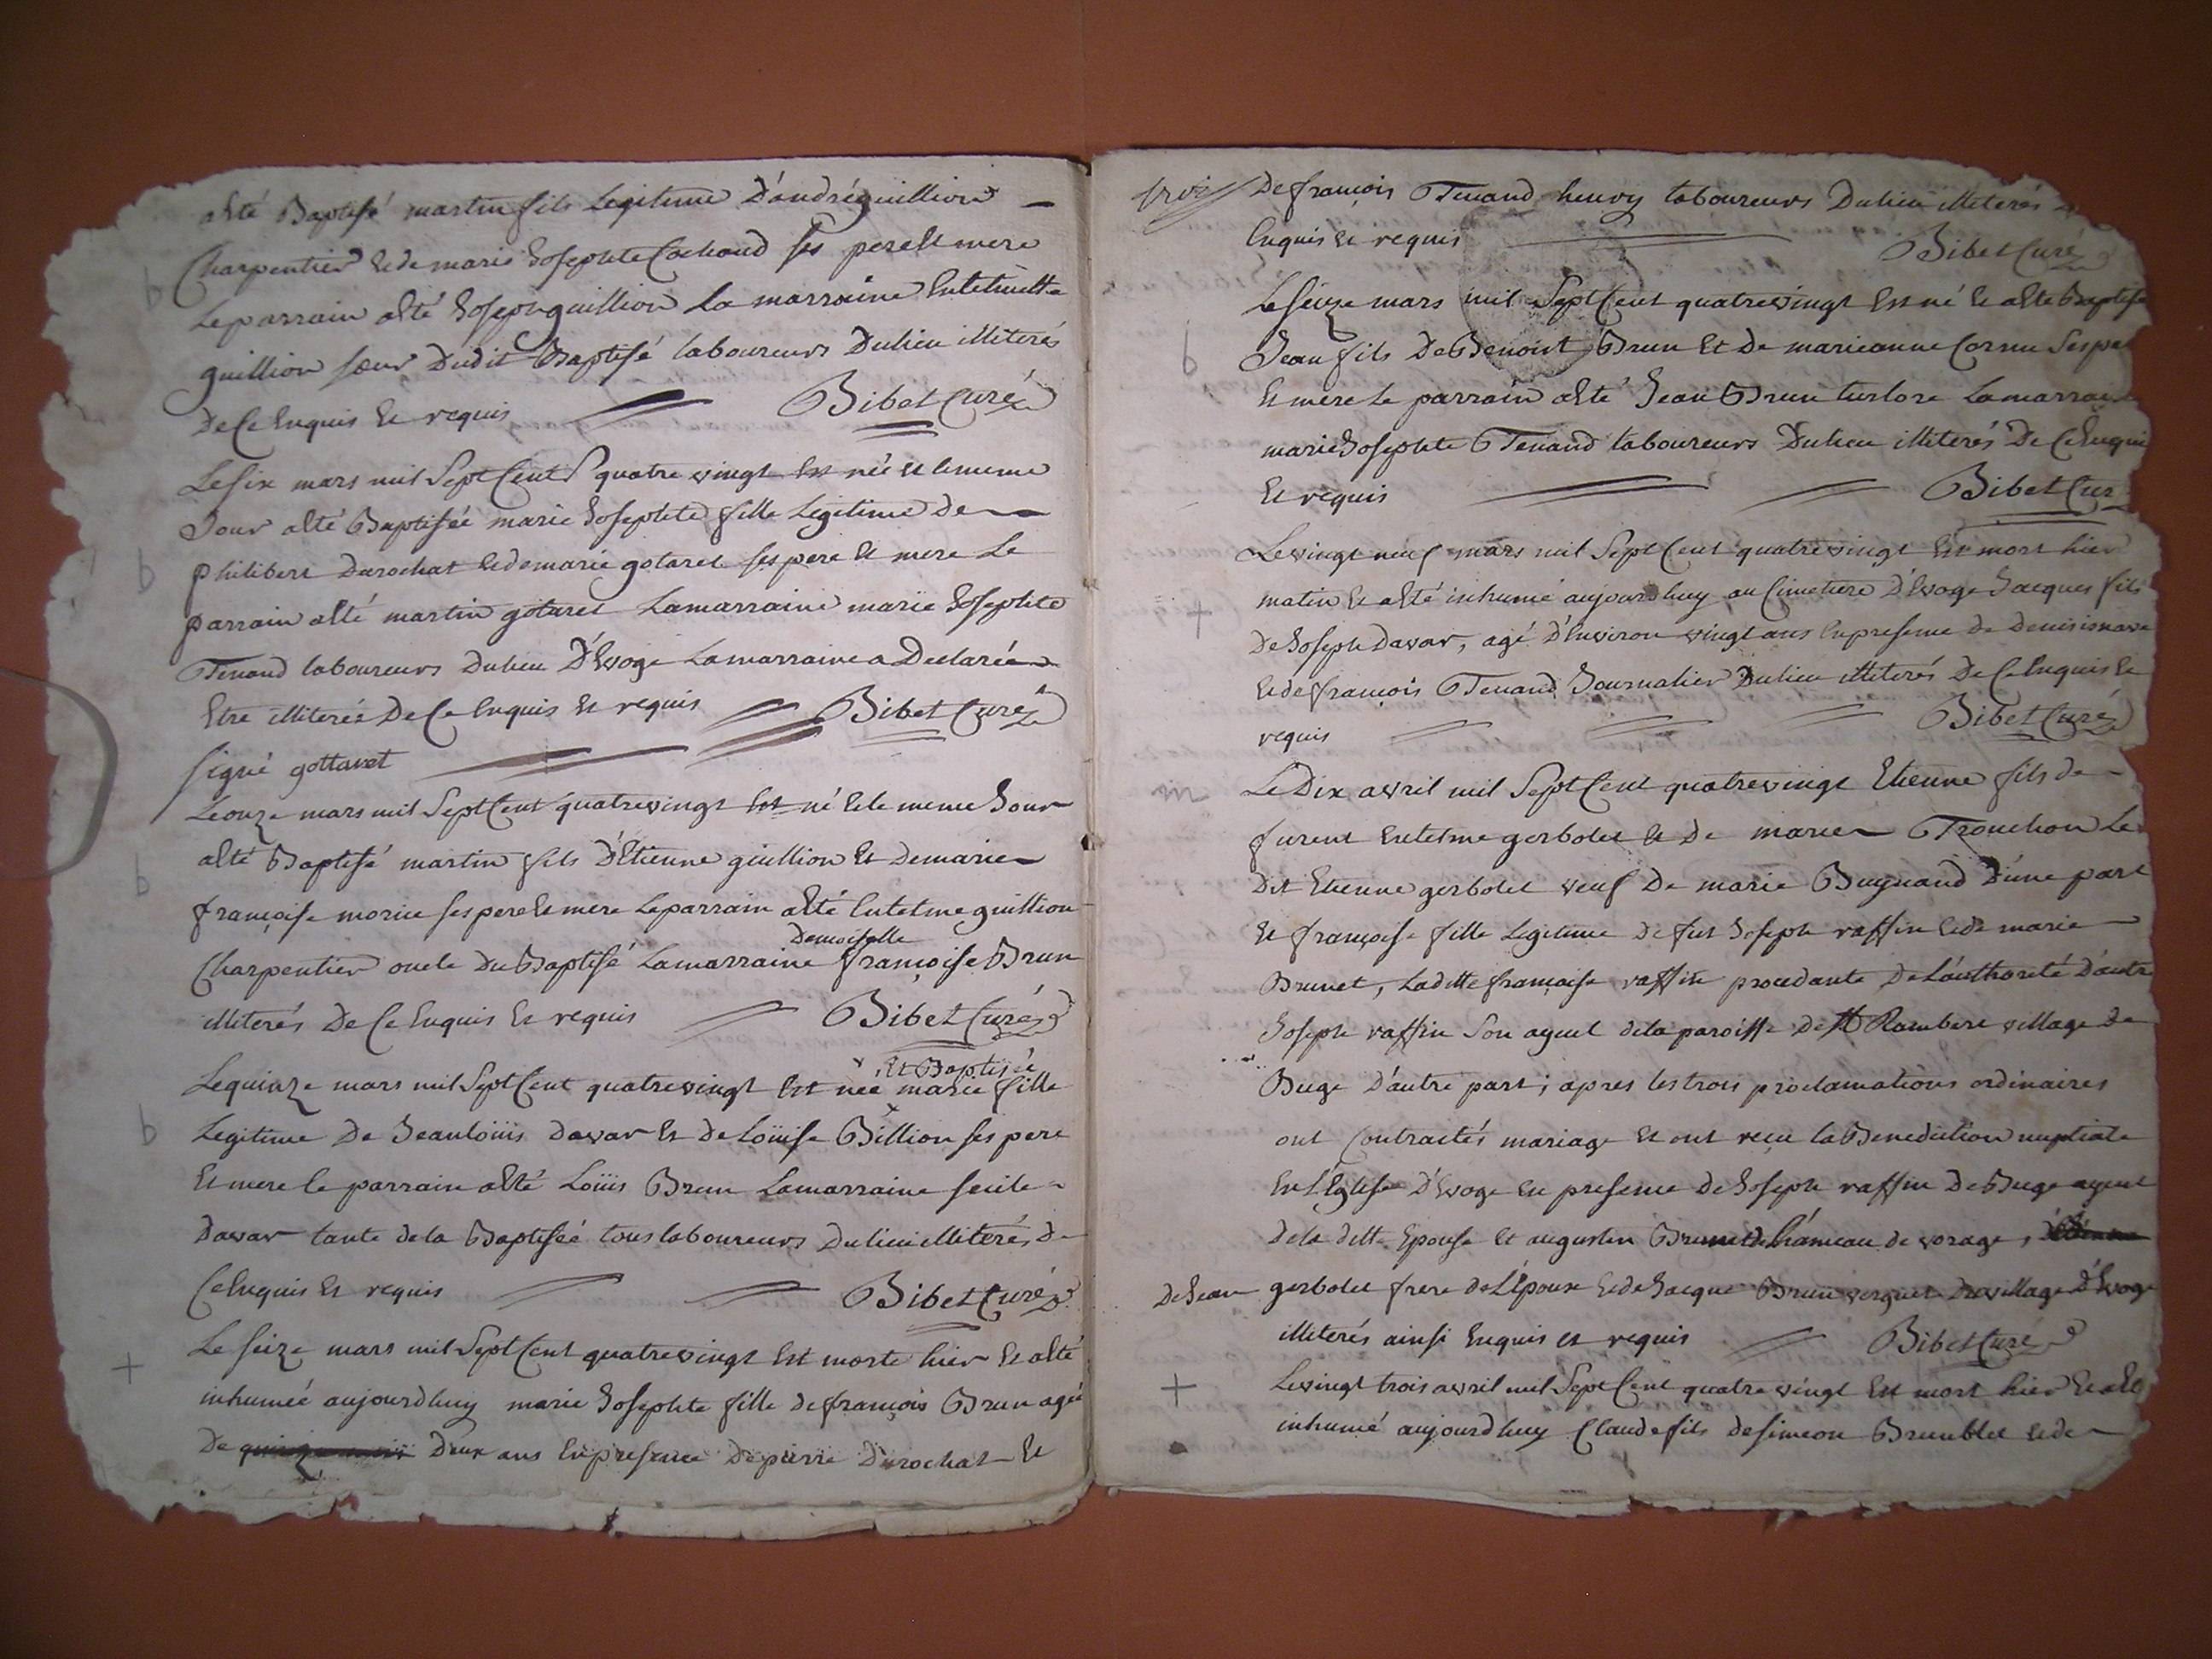 b
aété Baptisé martin fils Legitime D'andré guillion
Charpentier et de marie Josephte Cochaud ses pere et mere
Le parrain aété Joseph guillion La marraine Entelmette
guillion sœur Dudit Baptisé laboureurs Dulieu illiterés
De Ce Enquis Et requis Bibet Curé
Le six mars mil Sept Cents quatre vingt Est née et le meme
Jour aété Baptiséé marie Josephte fille Legitime De
b
philibert Durochat et de marie gotaret ses pere et mere Le
parrain aété martin gotaret La marraine marie Josephte
Tenand laboureurs Dulieu D'Evoge La marraine a Declarée
Etre illiterée De Ce Enquis Et requis Bibet Curé
signé gottaret
Le onze mars mil Sept Cent quatrevingt Est né et le meme Jour
b
aété Baptisé martin fils D'Etienne guillion Et De marie
françoise morin ses pere et mere Le parrain aété Entelme guillion
Demoiselle
Charpentier oncle Du Baptisé La marraine françoise Brun
illiterés De Ce Enquis Et requis Bibet Curé
Et Baptiséé
Le quinze mars mil Sept Cent quatrevingt Est née marie fille
b
Legitime De Jeanloüis Davar Et De Loüise Billion ses pere
Et mere le parrain aété Loüis Brun La marraine
Davar tante de la Baptiséé tous laboureurs Dulieu illiterés de
Ce Enquis Et requis Bibet Curé
+
Le seize mars mil Sept Cent quatrevingt Est morte hier Et aété
inhuméé aujourdhuy marie Josephte fille de françois Brun agée
De Deux ans En presence De pierre Durochat Et
trois
De françois Tenand henry laboureurs Dulieu illiterés
Enquis Et requis Bibet Curé
Le seize mars mil Sept Cent quatrevingt Est né Et aété Baptisé
b
Jean fils De Benoist Brun Et De marieanne Cornu Ses pe
Et mere Le parrain aété Jean Brun La marrain
marie Josephte Tenand laboureurs Dulieu illiterés De Ce Enqui
Et requis Bibet Cur
Le vingt neuf mars mil Sept Cent quatrevingt Est mort hier
+
matin Et aété inhumé aujourdhuy au Cimetiere D'Evoge Jacques fils
De Joseph Davar, agé D'Environ vingt ans En presence de Denis
et de françois Tenand Journalier Dulieu illiterés De Ce Enquis Et
requis Bibet Curé
m
Le Dix avril mil Sept Cent quatrevingt Etienne fils de
furent Entelme gerbolet Et De marie Tronchon Le
Dit Etienne gerbolet veuf De marie Buynand D'une part
Et françoise fille Legitime De fut Joseph raffin et de marie
Brunet, Laditte françoise raffin procedante De L'authorité D'autre
Joseph raffin Son ayeul de la paroisse De St Rambert village De
Buge D'autre part; apres les trois proclamations ordinaires
ont Contractés mariage Et ont reçu la Benediction nuptiale
En L'Eglise D'Evoge En presence De Joseph raffin De Buge ayeul
de la ditte Epouse Et augustin Brunet de hámeau de vorage,
De Jean gerbolet frere de L'Epoux et de Jacque Brun verguet Du village D'Evoge
illiterés ainsi Enquis et requis Bibet Curé
+
Le vingt trois avril mil Sept Cent quatre vingt Est mort hier Et aété
inhumé aujourdhuy Claude fils de simeon Brunblet et de